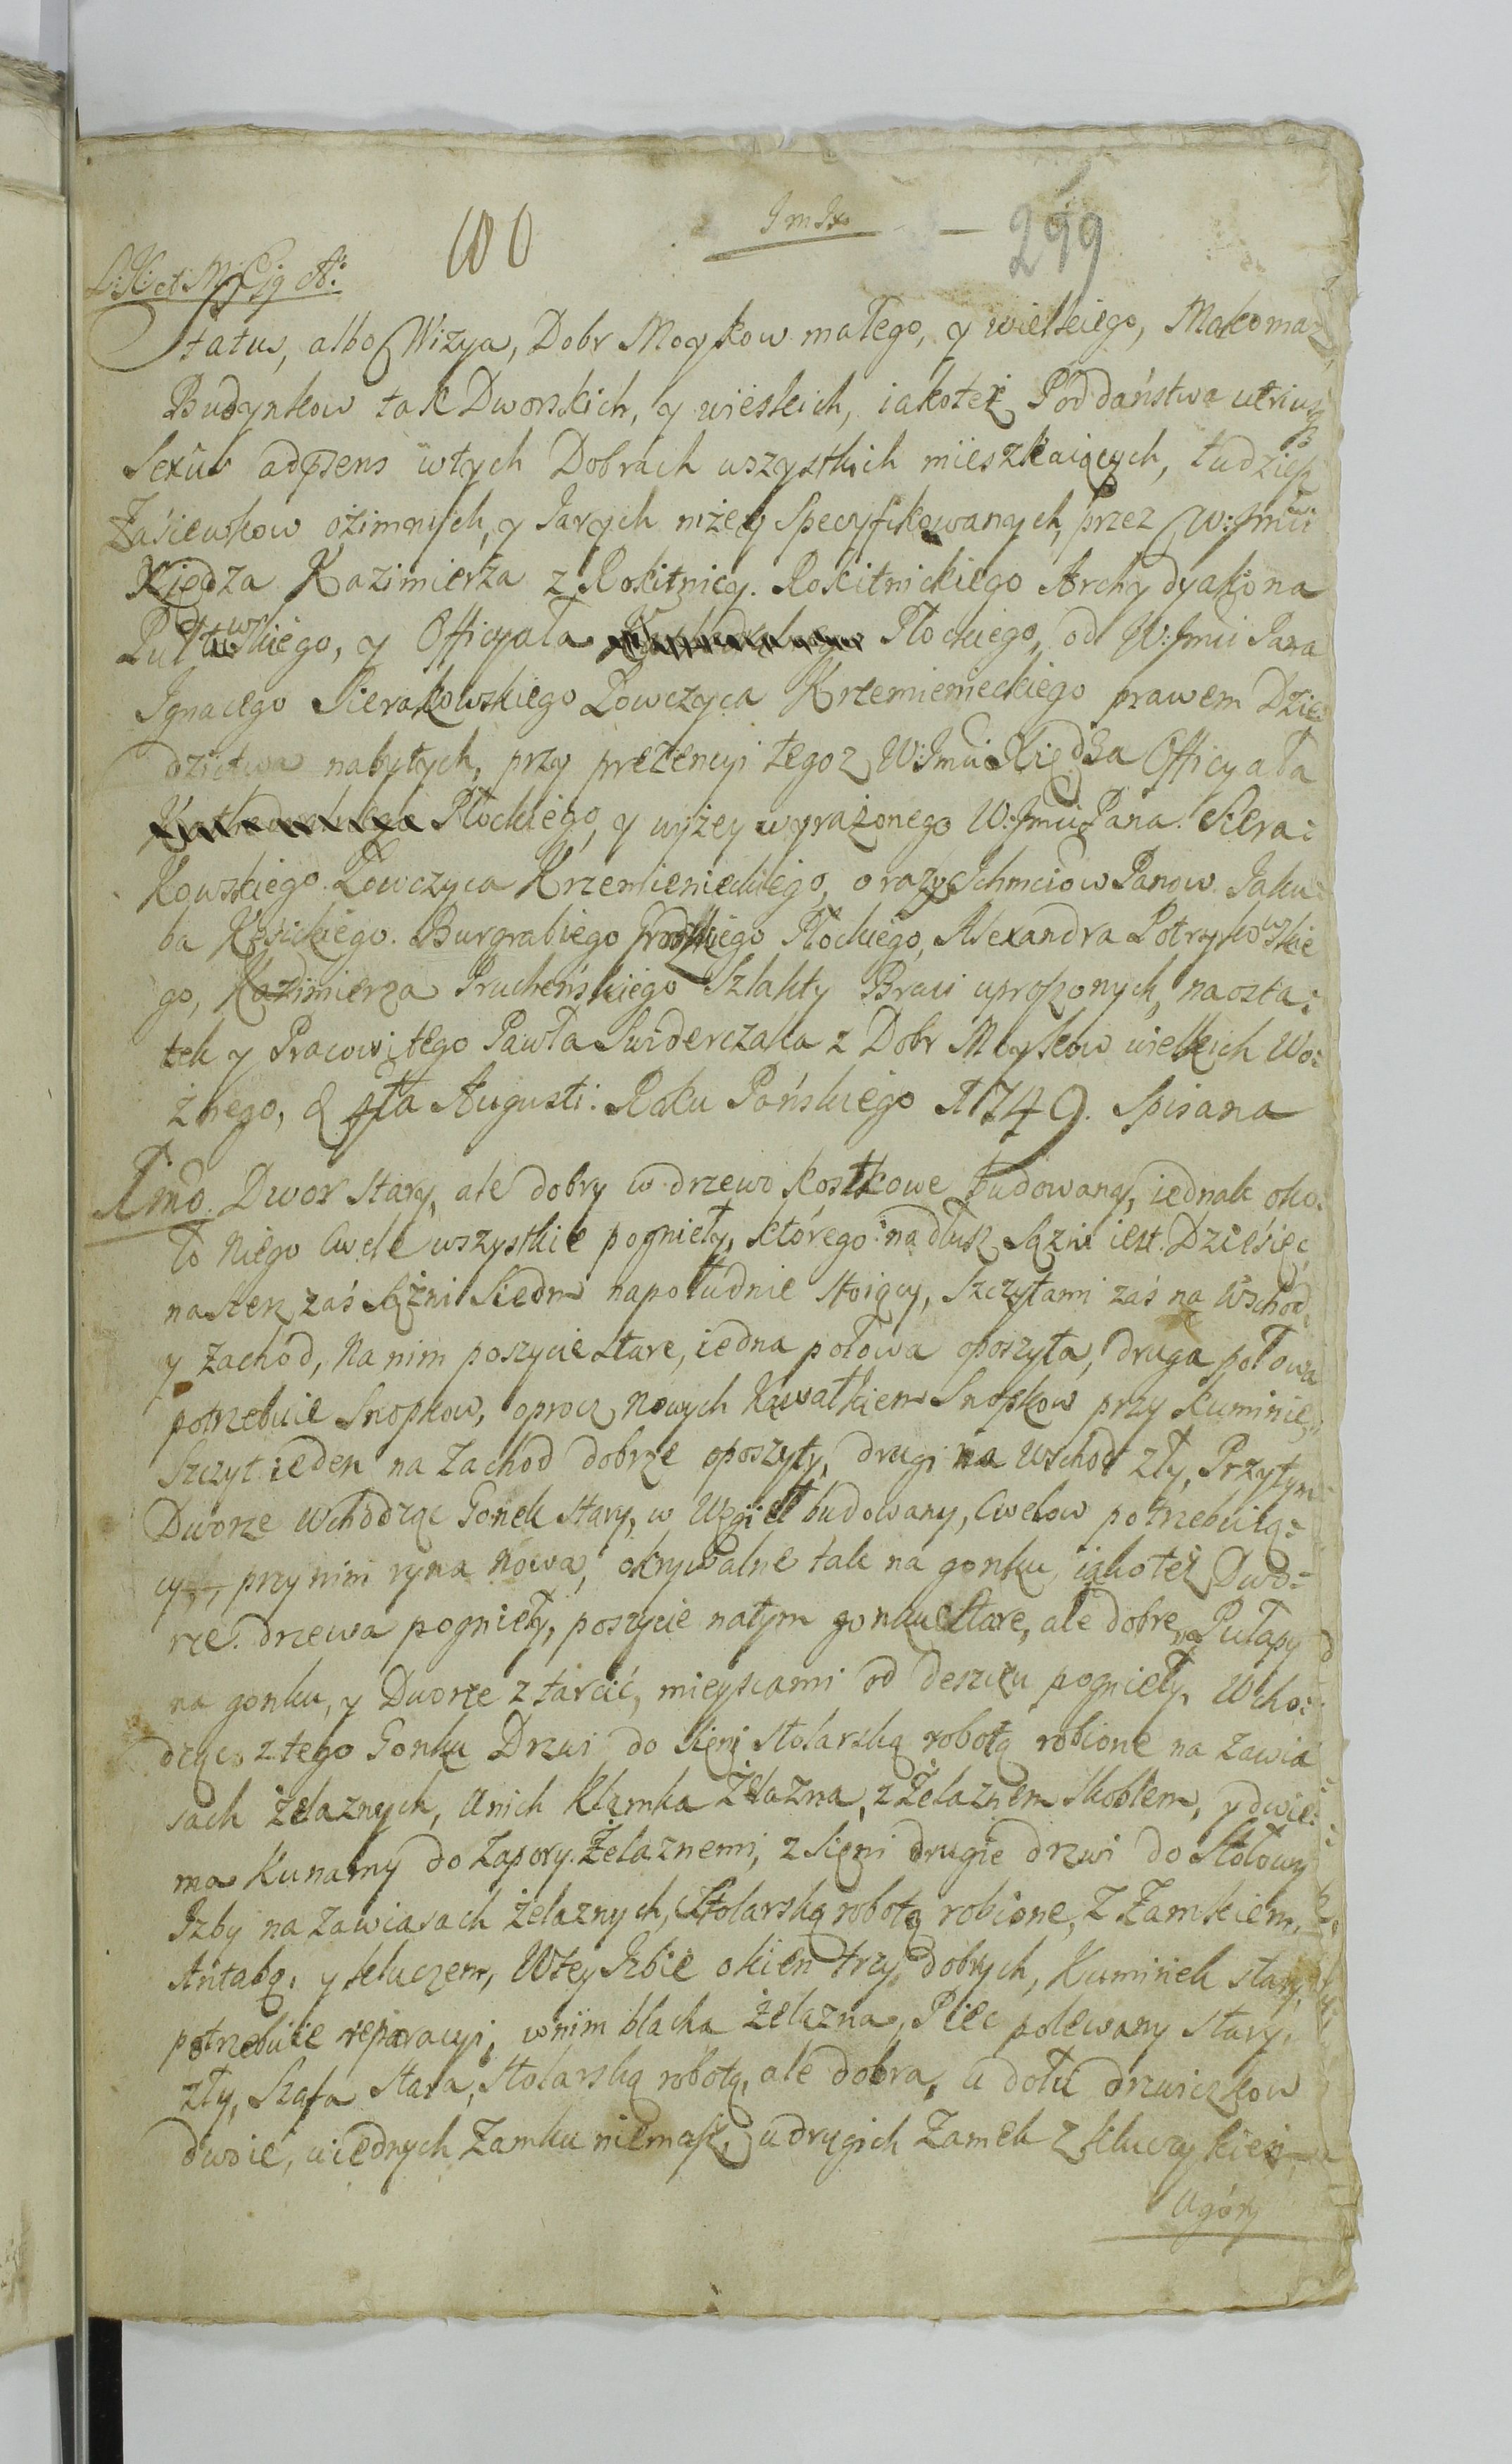 100
Im Ix
299
Status, albo Wizya, Dobr Moykow małego, y wielkiego, Makomaz,
Budynkow tak Dworskich, y wieskich, iakoteż Poddaństwa utriusq
Sexûs adpsens wtych Dobrach wszystkich mieszkaiących, tudzieß
Zasiewkow oźimnych, y Iarych niżey Specyfikowanych, przez W: Jmći
Xiędza Kazimierza z Rokitnicy. Rokitnickiego Archydyakona
Pułtuwskiego, y Officyała Płockiego, od W: Jmći Pana
Ignacego Sierakowskiego Łowczyca Krzemienieckiego prawem Dzie
dzictwa nabytych, przy prezencyi tegoz W: Jmći Xiędza Officyała
Płockiego, y wyżey wyrażonego W: Jmći Pana Siera:
kowskiego Łowczyca Krzemienieckiego, oraz Ichmciow Panow Jaku:
ba Burgrabiego Grodzkiego Płockiego, Alexandra Potrykowskie
go, Kazimierza Prucheńskiego Szlachty Braci uproszonych, naosta:
tek y Pracowitego Pawła Swiderczaka z Dobr Moykow wielkich Wo:
źnego, d Augusti. Roku Pańskiego 1749. Spisana
1mo. Dwor stary, ale dobry w drzewo kostkowe budowany, iednak oko:
ło niego Cwele wszystkie pogniły, którego nadłuż Sążni iest Dziesięć
naszerz zaś Sążni Siedm napołudnie stoiący, Szczytami zaś na Wschod,
y Zachód, Na nim poszycie stare, iedna połowa oposzyta, druga połowa
potrzebuie Snopkow, oprocz Nowych Kawałkiem Snopkow przy Kuminie,
Szczyt ieden na Zachod dobrze oposzyty, drugi na Wschod zły, Przytym
Dworze Wchodząc Gonek stary, w Węgieł budowany, Cwelow potrzebuią:
cy, przy nim ryna Nowa, okrywalne tak na gonku, iakoteż Dwo:
rze drzewa pogniły, poszycie natym gonku stare, ale dobre, Pułapy
na gonku, y Dworze z tarcić, mieyscami od deszczu pogniły, Wcho:
dząc z tego Gonku Drzwi do Sieni stolarską robotą robione na Zawia
sach żelaznych, Unich Klamka Żelazna, z Żelaznem Skoblem, y dwie:
ma Kunamy do Zapory Żelaznemi, z Sieni drugie drzwi do Stołowy
Izby na Zawiasach żelaznych, Stolarską robotą robione, z Zamkiem,
Antabą, y kluczem, Wtey Izbie okien trzy dobrych, Kuminek stary,
potrzebuie reparacyi, wnim blacha żelazna, Piec polewany stary,
zły, Szafa stara, Stolarską robotą, ale dobra, U dołu drzwiczkow
dwoie, uiednych Zamku niemasz, u drugich Zamek z kluczykiem
Ugóry